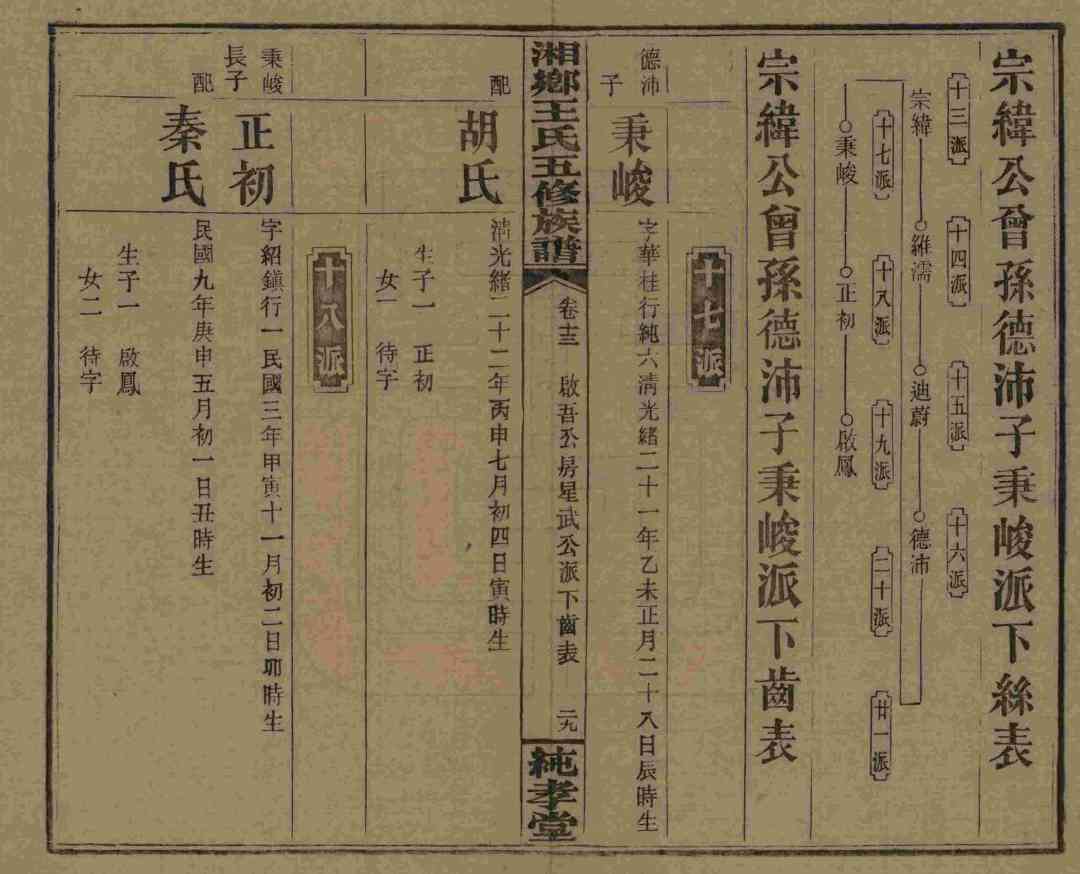 宗緯公曾孫德沛子秉峻派下絲表
十三派
十四派
十五派
十六派
宗緯
維濡
迪蔚
德沛
十七派
十八派
十九派
二十派
廿一派
秉峻
正初
啟鳳
宗緯公曾孫德沛子秉峻派下齒表
十七派
德沛
子
秉峻
字華桂行純六清光緒二十一年乙未正月二十八日辰時生
湘鄉王氏五修族譜
卷十三
啟吾公房星武公派下齒表
二九
純孝堂
配
胡氏
清光緒二十二年丙申七月初四日寅時生
生子一 正初
女一 待字
十八派
秉峻
長子
正初
字紹鎮行一民國三年甲寅十一月初二日卯時生
配
秦氏
民國九年庚申五月初一日丑時生
生子一 啟鳳
女二 待字